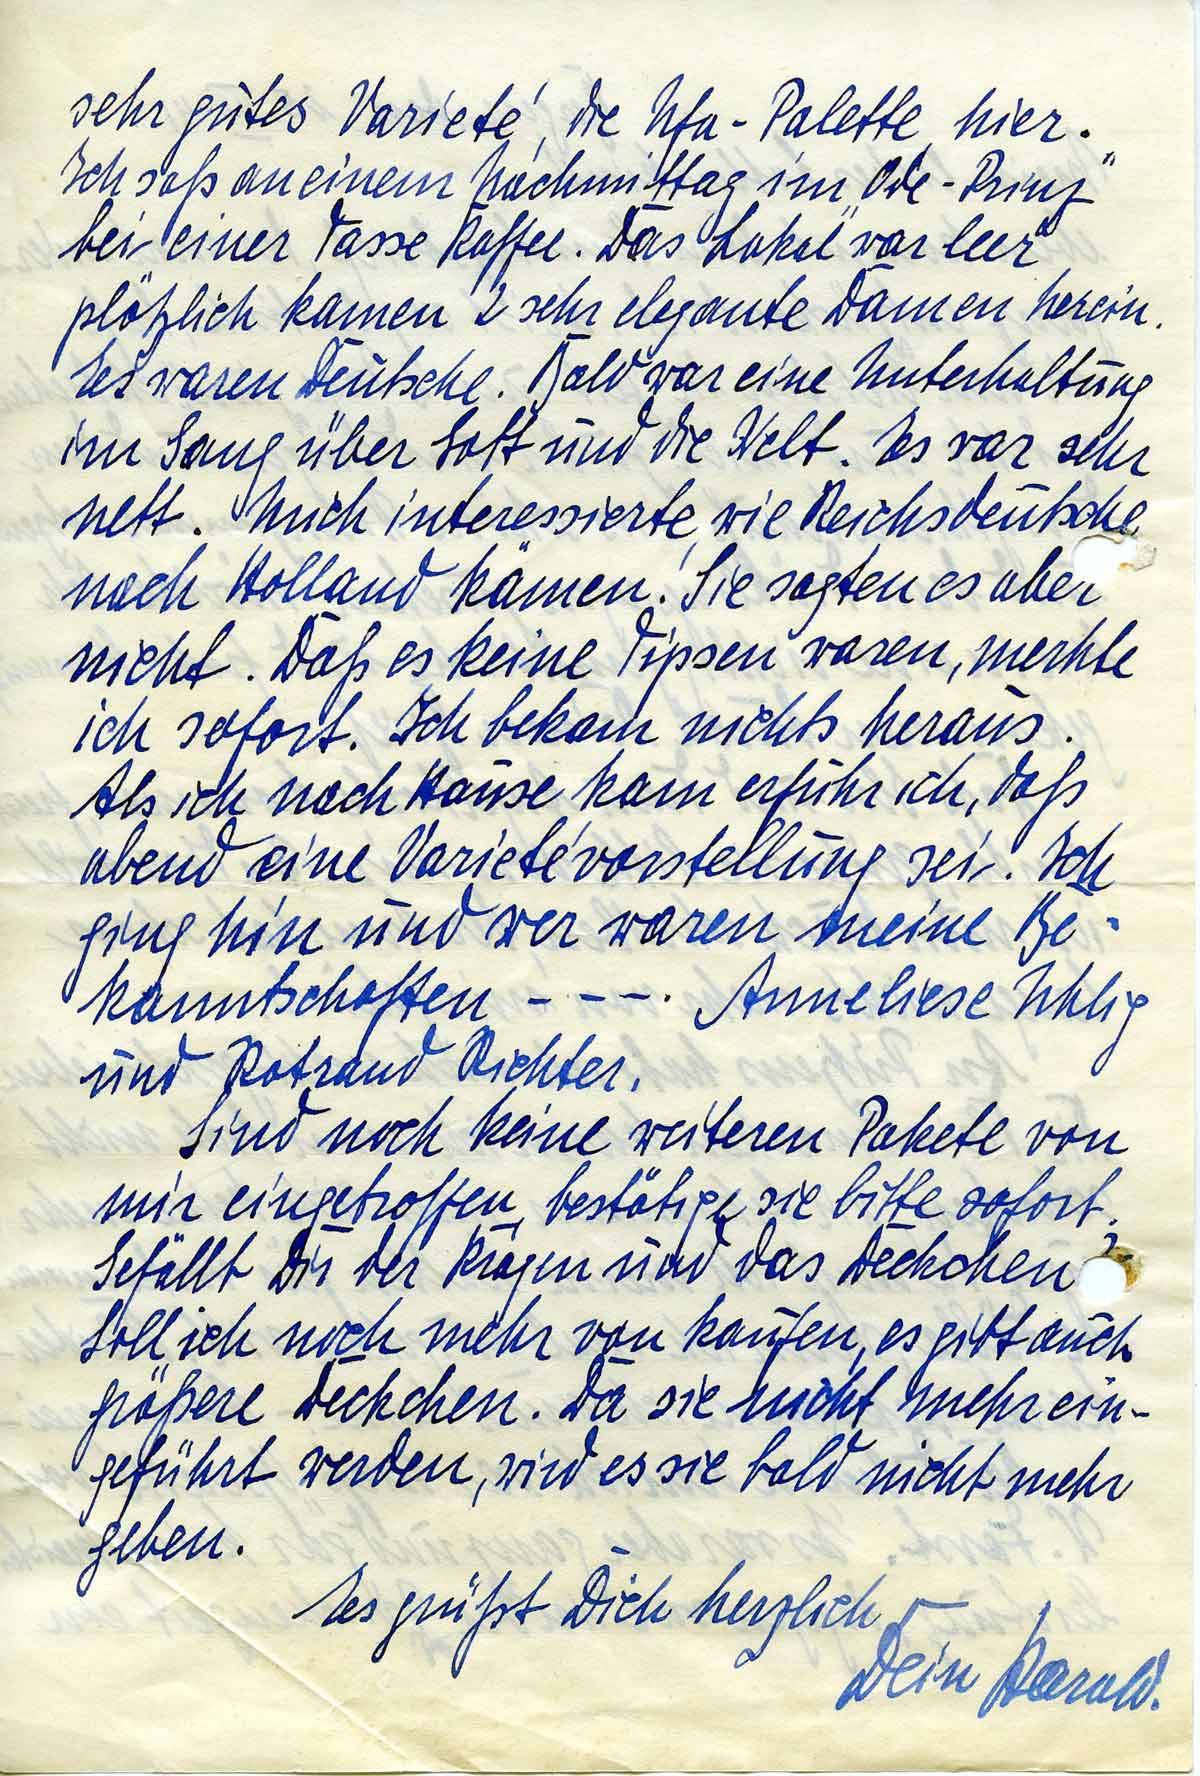 sehr gutes Varieté, die Ufa-Palette, hier.
Ich saß an einem Nachmittag im „Ode-Prinz"
bei einer Tasse Kaffee. Das Lokal war leer
plötzlich kamen 2 sehr elegante Damen herein.
Es waren Deutsche. Bald war eine Unterhaltung
im Gang über Gott und die Welt. Es war sehr
nett. Mich interessierte, wie Reichsdeutsche
nach Holland kämen. Sie sagten es aber
nicht. Daß es keine Tipsen waren, merkte
ich sofort. Ich bekam nichts heraus.
Als ich nach Hause kam erfuhr ich, daß
abend eine Varietévorstellung sei. Ich
ging hin und wer waren meine Be-
kanntschaften - - - . Anneliese Uhlig
und Rotraud Richter.
Sind noch keine weiteren Pakete von
mir eingetroffen, bestätige sie bitte sofort.
Gefällt Dir der Kragen und das Deckchen?
Soll ich noch mehr von kaufen, es gibt auch
größere Deckchen. Da sie nicht mehr ein-
geführt werden, wird es sie bald nicht mehr
geben.
Es grüßt Dich herzlich
Dein Harald.